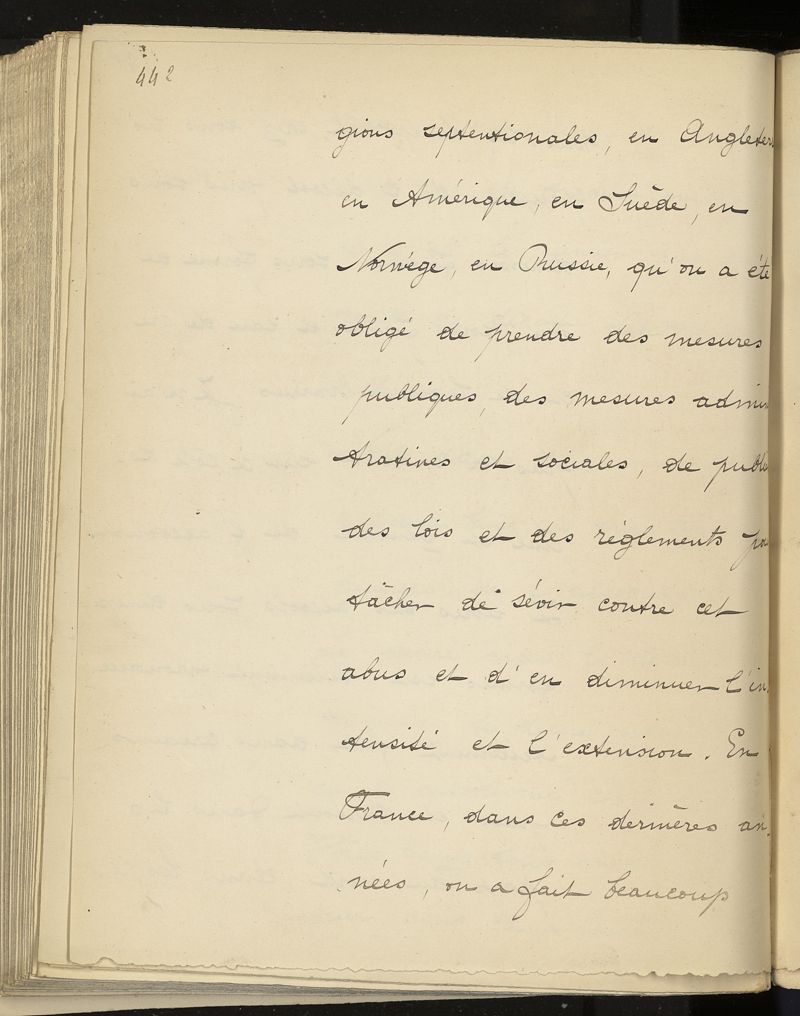 442
gions septentionales, en Angleter
en Amérique, en Suède, en
Norwège, en Russie, qu'on a été
obligé de prendre des mesures
publiques, des mesures admin
tratives et sociales, de publi
des lois et des réglements po
tâcher de sévir contre cet
abus et d'en diminuer l'in
tensité et l'extension. En
France, dans ces dernières an
nées, on a fait beaucoup